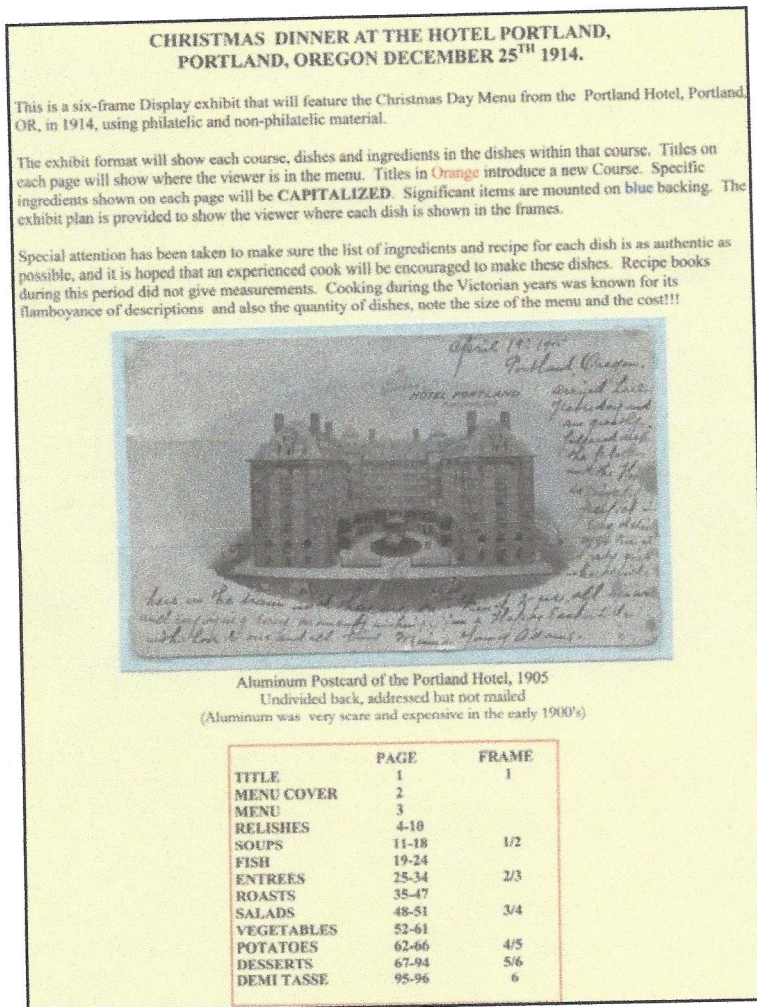 CHRISTMAS DINNER AT THE HOTEL PORTLAND,
PORTLAND, OREGON DECEMBER 25TH 1914.
This is a six-frame Display exhibit that will feature the Christmas Day Menu from the Portland Hotel, Portland,
OR, in 1914, using philatelic and non-philatelic material.
The exhibit format will show each course, dishes and ingredients in the dishes within that course. Titles on
each page will show where the viewer is in the menu. Titles in Orange introduce a new Course. Specific
ingredients shown on each page will be CAPITALIZED. Significant items are mounted on blue backing. The
exhibit plan is provided to show the viewer where each dish is shown in the frames.
Special attention has been taken to make sure the list of ingredients and recipe for each dish is as authentic as
possible, and it is hoped that an experienced cook will be encouraged to make these dishes. Recipe books
during this period did not give measurements. Cooking during the Victorian years was known for its
flamboyance of descriptions and also the quantity of dishes, note the size of the menu and the cost!!!
April 19
Portland Oregon.
HOTEL PORTLAND
Yesterday and
and the
here in the
Aluminum Postcard of the Portland Hotel, 1905
Undivided back, addressed but not mailed
(Aluminum was very scare and expensive in the early 1900's)
PAGE FRAME
TITLE 1 1
MENU COVER 2
MENU 3
RELISHES 4-10
SOUPS 11-18 1/2
FISH 19-24
ENTREES 25-34 2/3
ROASTS 35-47
SALADS 48-51 3/4
VEGETABLES 52-61
POTATOES 62-66 4/5
DESSERTS 67-94 5/6
DEMI TASSE 95-96 6